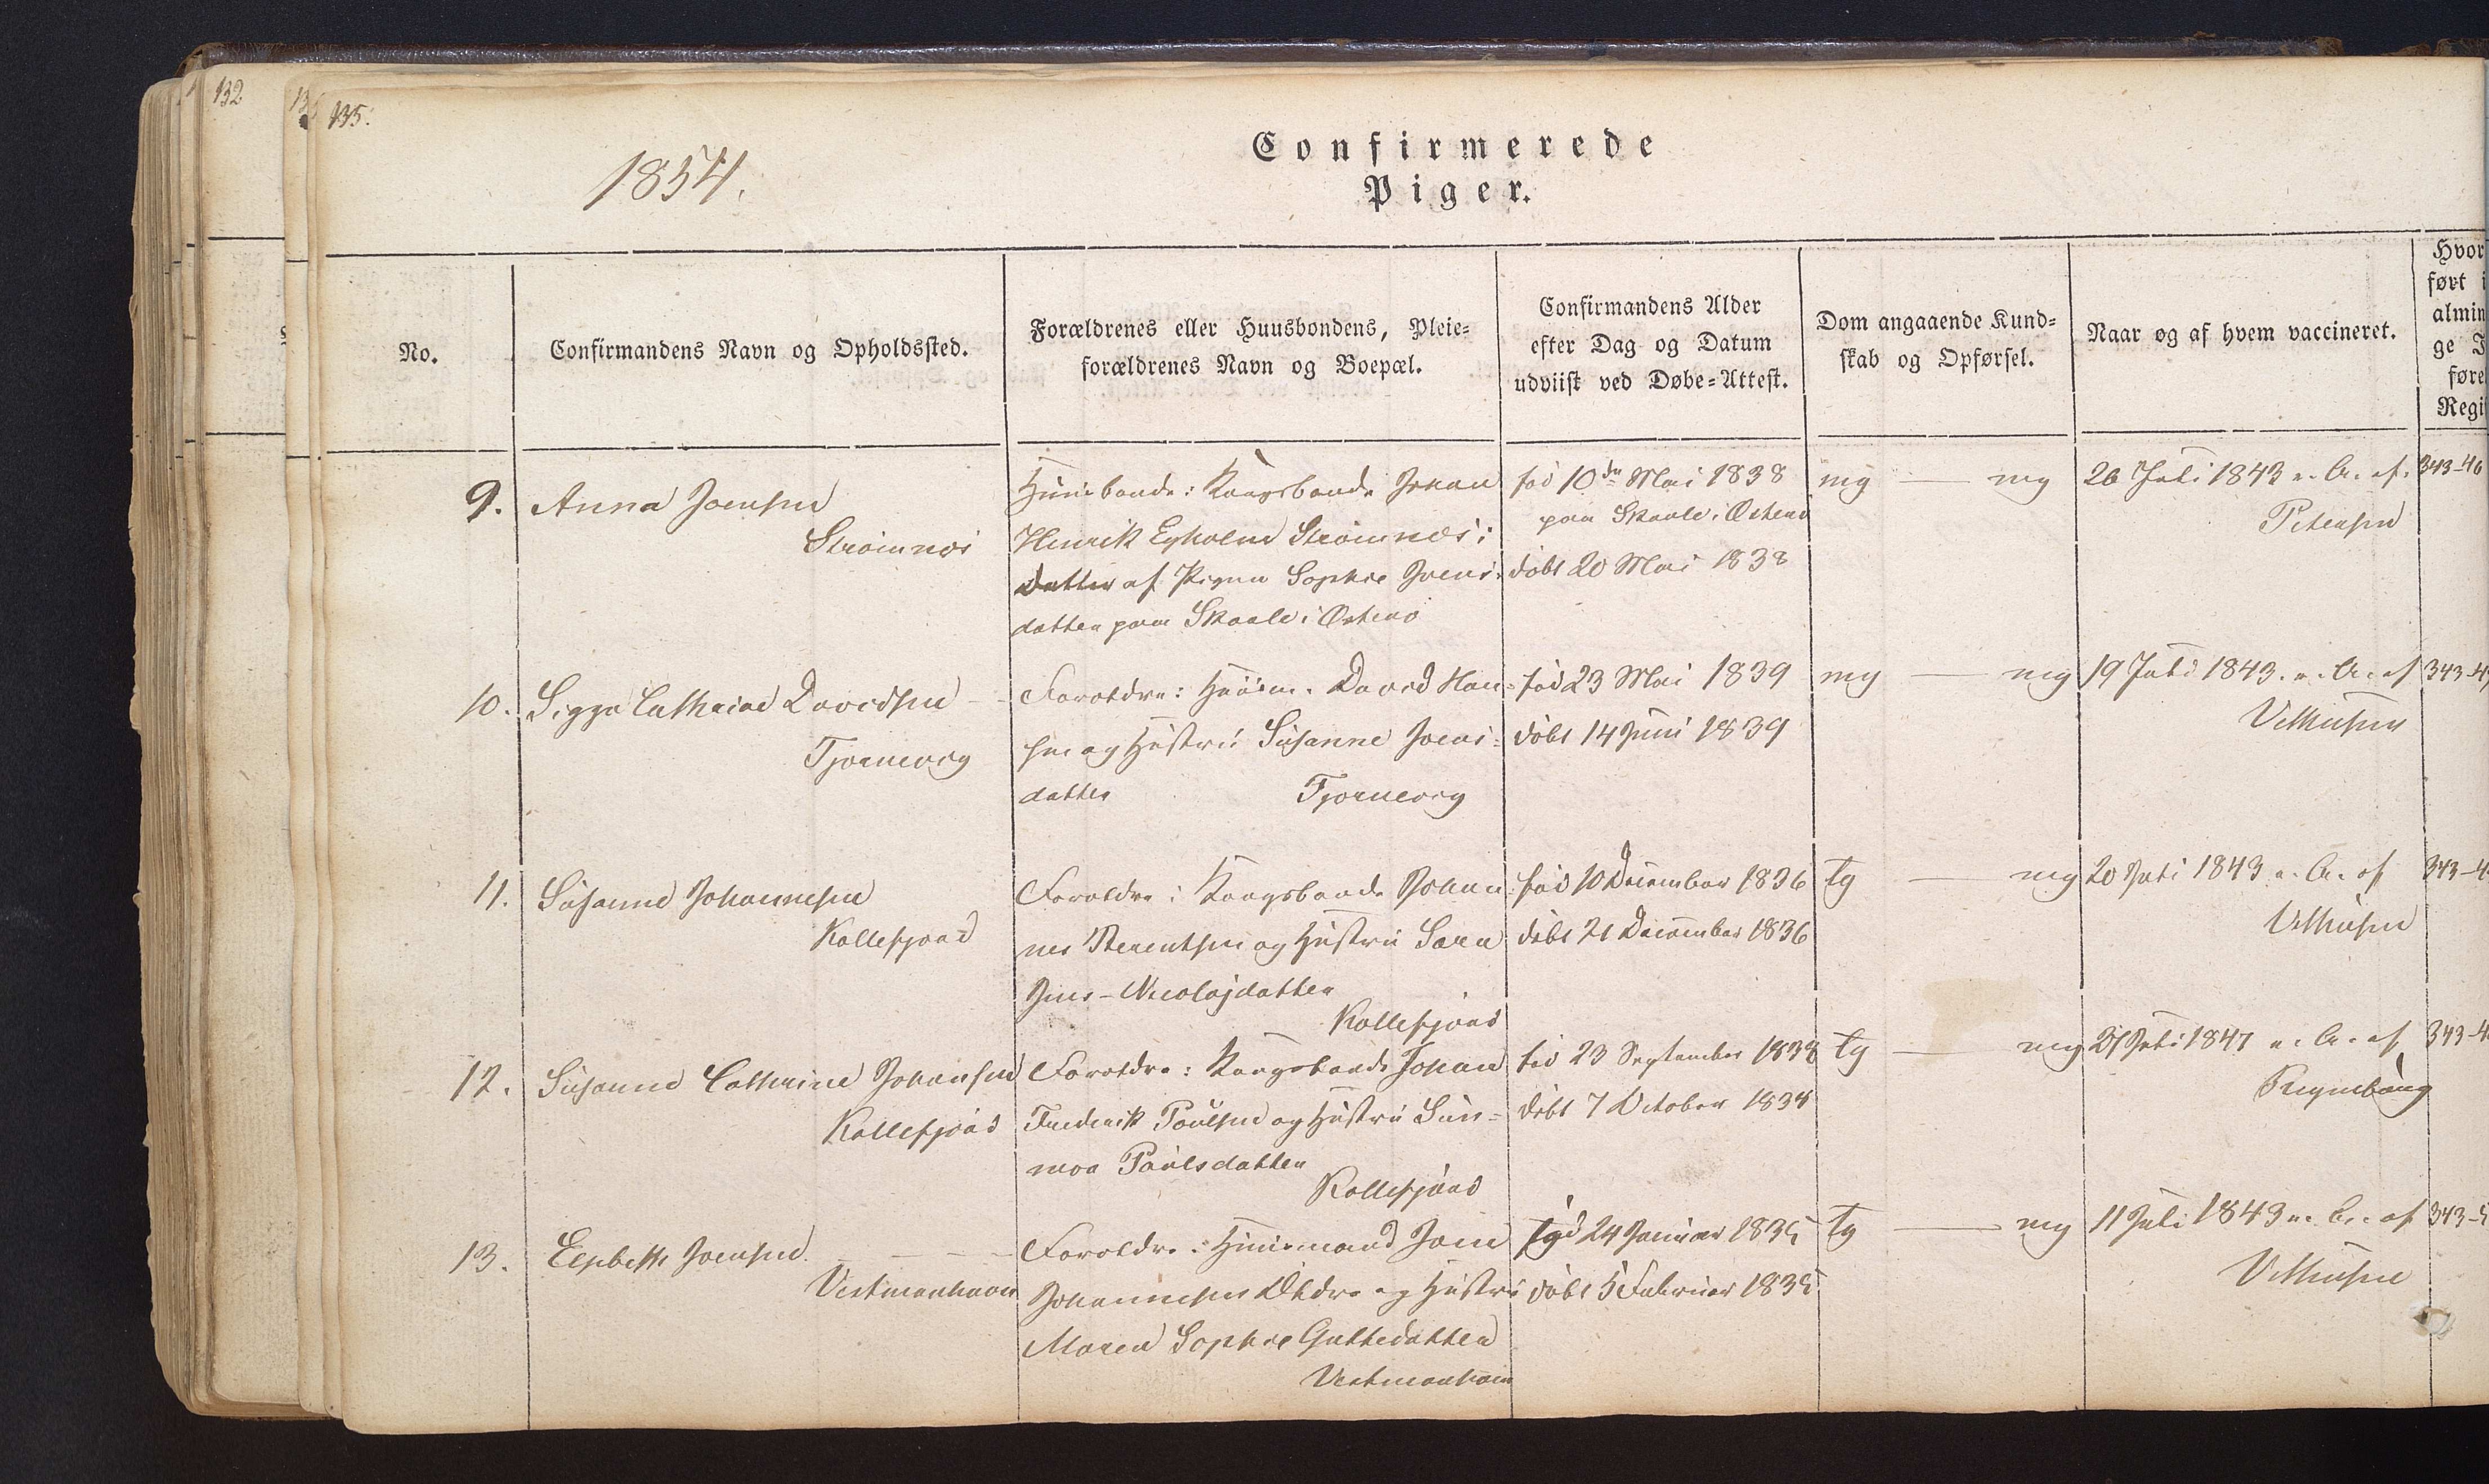 132
135.
1854.
Confirmerede
Piger.
No.
Confirmandens Navn og Opholdssted.
Forældrenes eller Huusbondens, Pleie=
forældrenes Navn og Boepæl.
Confirmandens Alder
efter Dag og Datum
udviist ved Døbe=Attest.
Dom angaaende Kund=
skab og Opførsel.
Naar og af hvem vaccineret.
Hvor
ført i
almin
ge J
føre
Regi
9. Anna Joensen
Strömnæs
Huusbonde: Kongsbonde Johan
Henrik Egholm Strömnæs;
Datter af Pigen Sophie Joens-
datter paa Skaale i Österö
föd 10de Mai 1838
paa Skaale i Österö
döbt 20 Mai 1838
mg — mg
26 Juli 1843 v. C. af
Petersen
343-40
10. Sigga Cathrine Davidsen
Tjörnevig
Forældre: Huusm. David Han=
sen og Hustru Susanne Joens=
datter
Tjörnevig
föd 23 Mai 1839
döbt 14 Juni 1839
mg — mg
19 Juli 1843. v. C. af
343-4
11. Susanne Johannesen
Kollefjord
Forældre: Kongsbonde Johan
nes Berentsen og Hustru Sara
Jens-Nicolajdatter
Kollefjord
föd 10 December 1836
döbt 21 December 1836
Tg — mg
20 Juli 1843 v. C. af
343-4
12. Susanne Cathrine Johansen
Kollefjord
Forældre: Kongsbonde Johan
Frederik Poulsen og Hustru Sun=
neva Poulsdatter
Kollefjord
föd 23 September 1838
döbt 7 October 1838
Tg — mg
21 Juli 1847 v. C. af
343-4
13. Elsbeth Joensen
Vestmanhavn
Forældre: Huusmand Joen
Johannesen Ældre og Hustru
Maren Sophie Guttesdatter
Vestmanhavn
föd 24 Januar 1835
döbt 5 Februar 1835
Tg — mg
11 Juli 1843 v. C. af
343-5